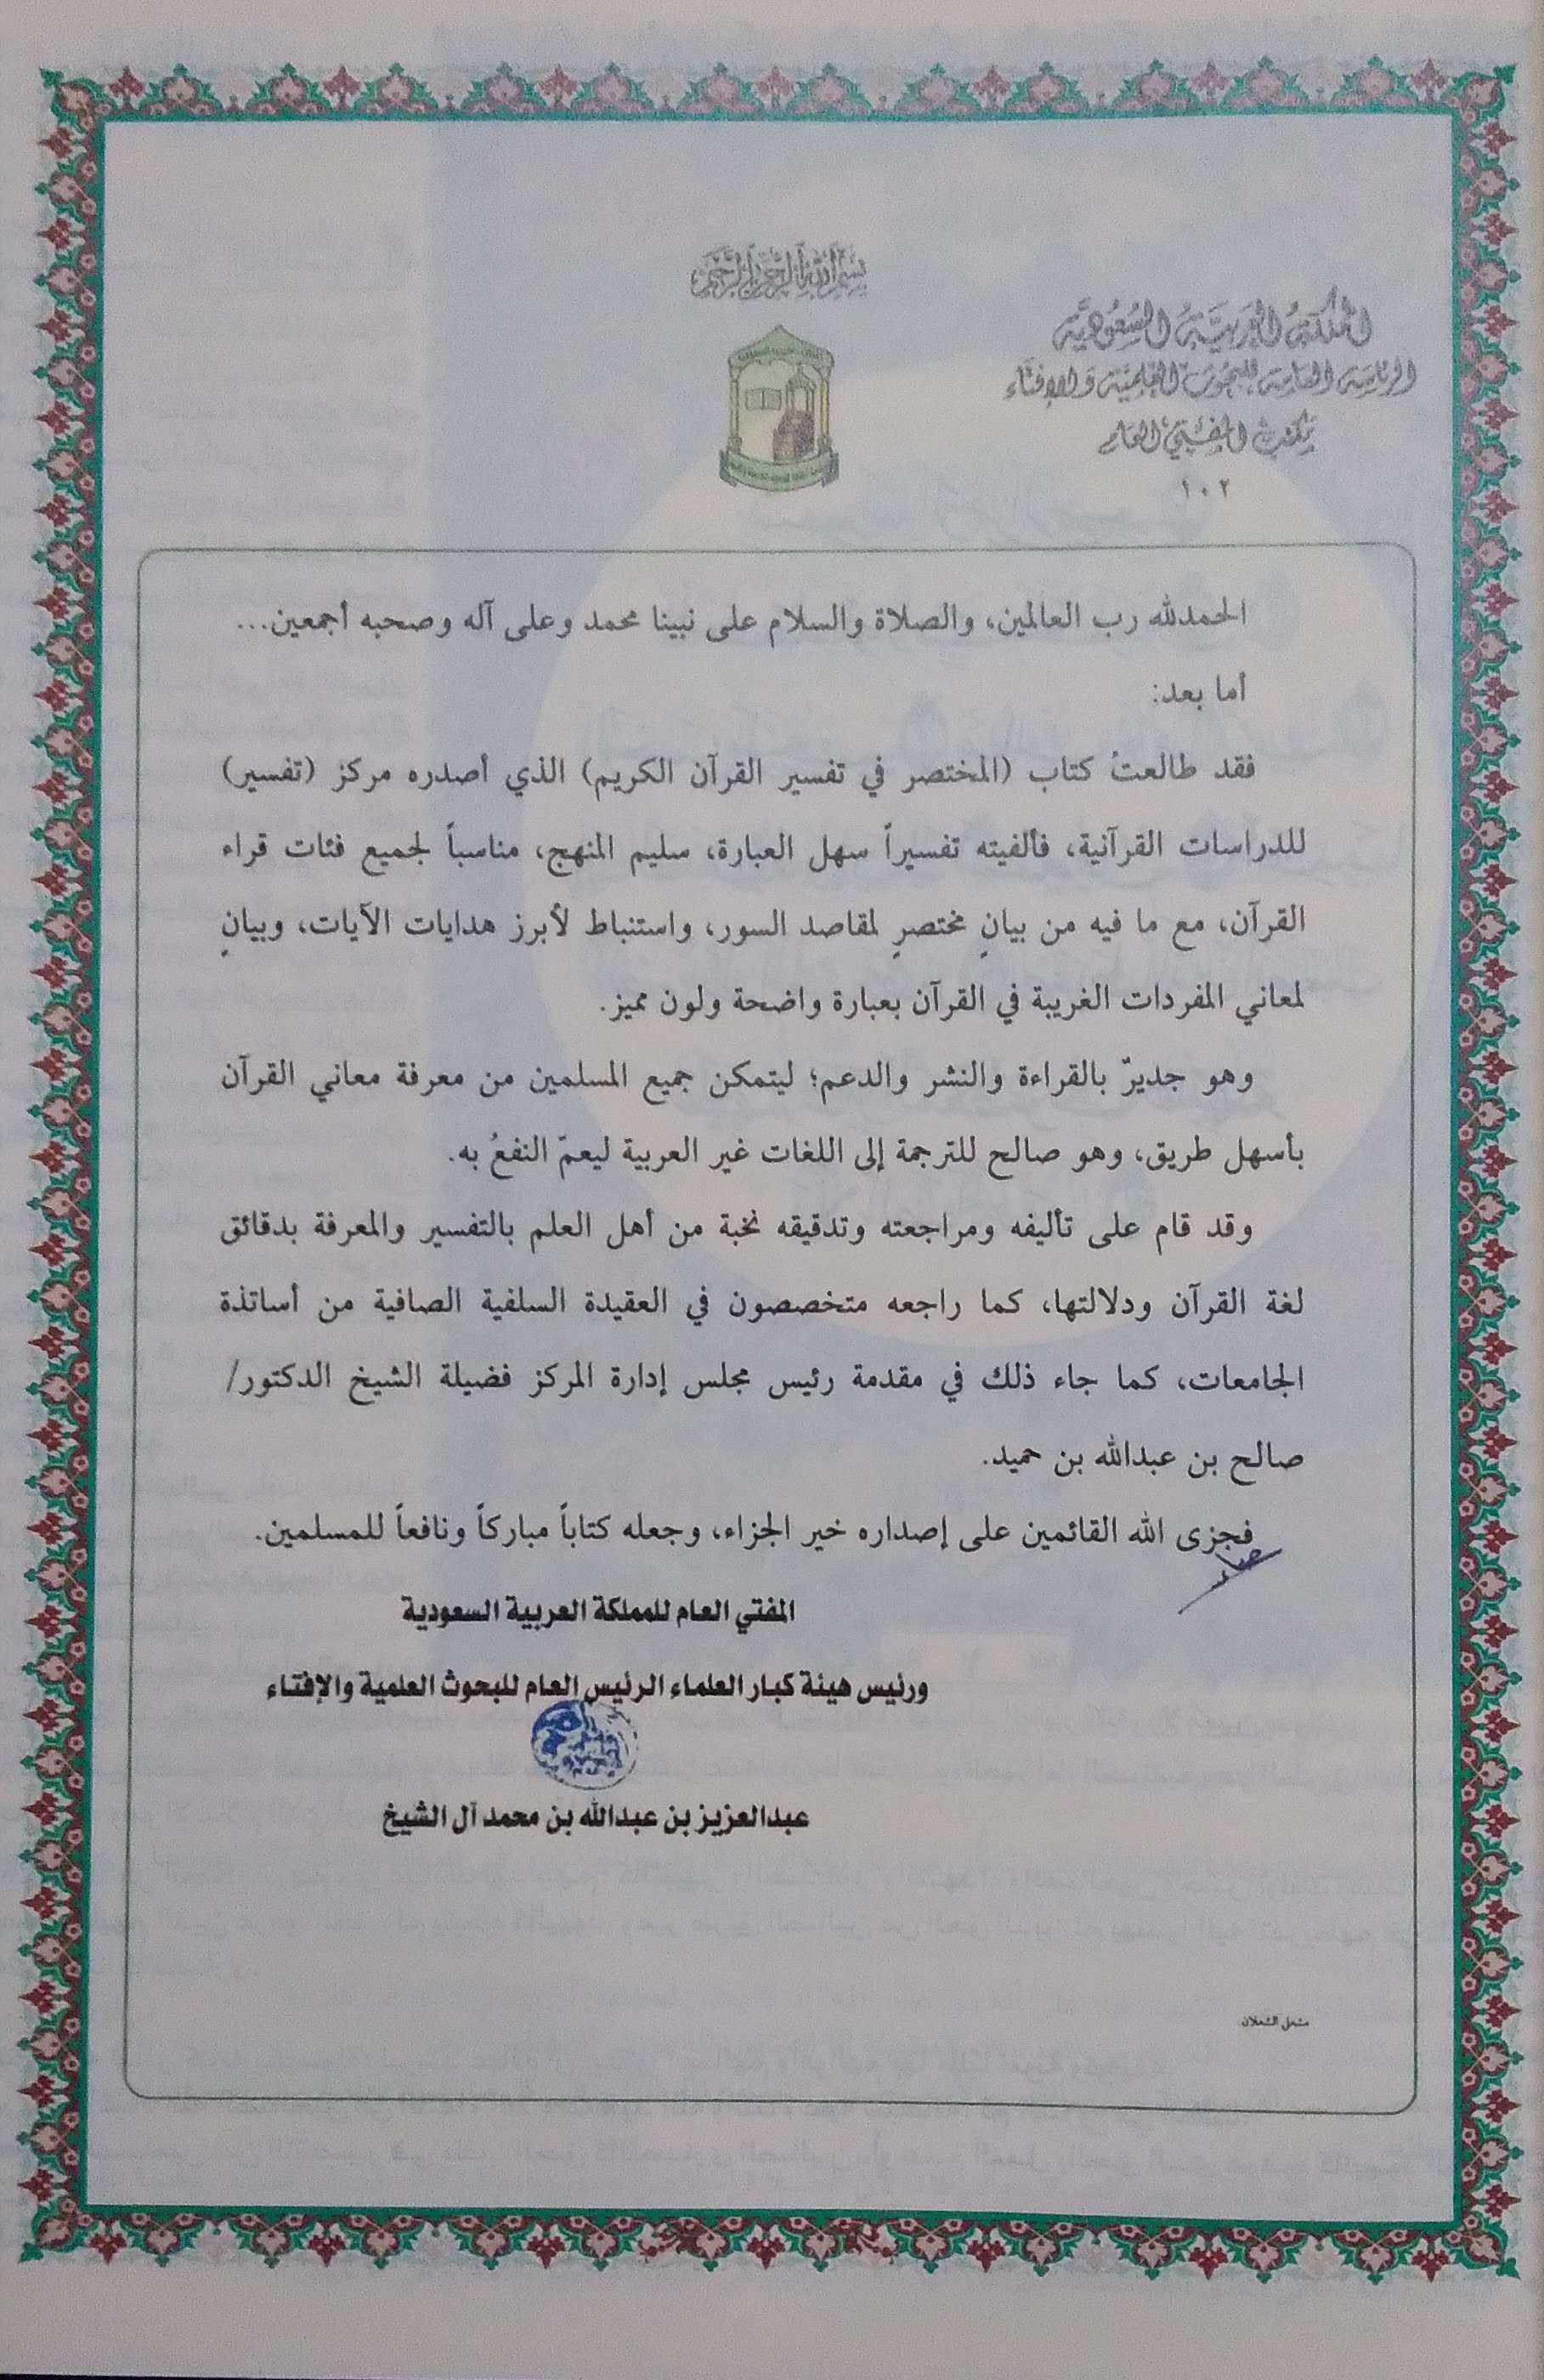 بسم الله الرحمن الرحيم
المملكة العربية السعودية
الرئاسة العامة للبحوث العلمية والإفتاء
مكتب المفتي العام
١٠٢
الحمدلله رب العالمين، والصلاة والسلام على نبينا محمد وعلى آله وصحبه أجمعين...
أما بعد:
فقد طالعتُ كتاب (المختصر في تفسير القرآن الكريم) الذي أصدره مركز (تفسير)
للدراسات القرآنية، فألفيته تفسيراً سهل العبارة، سليم المنهج، مناسباً لجميع فئات قراء
القرآن، مع ما فيه من بيانٍ مختصرٍ لمقاصد السور، واستنباط لأبرز هدايات الآيات، وبيانٍ
لمعاني المفردات الغريبة في القرآن بعبارة واضحة ولون مميز.
وهو جديرٌ بالقراءة والنشر والدعم؛ ليتمكن جميع المسلمين من معرفة معاني القرآن
بأسهل طريق، وهو صالح للترجمة إلى اللغات غير العربية ليعمّ النفعُ به.
وقد قام على تأليفه ومراجعته وتدقيقه نخبة من أهل العلم بالتفسير والمعرفة بدقائق
لغة القرآن ودلالتها، كما راجعه متخصصون في العقيدة السلفية الصافية من أساتذة
الجامعات، كما جاء ذلك في مقدمة رئيس مجلس إدارة المركز فضيلة الشيخ الدكتور/
صالح بن عبدالله بن حميد.
فجزى الله القائمين على إصداره خير الجزاء، وجعله كتاباً مباركاً ونافعاً للمسلمين.
المفتي العام للمملكة العربية السعودية
ورئيس هيئة كبار العلماء الرئيس العام للبحوث العلمية والإفتاء
عبدالعزيز بن عبدالله بن محمد آل الشيخ
مشعل الشعلان